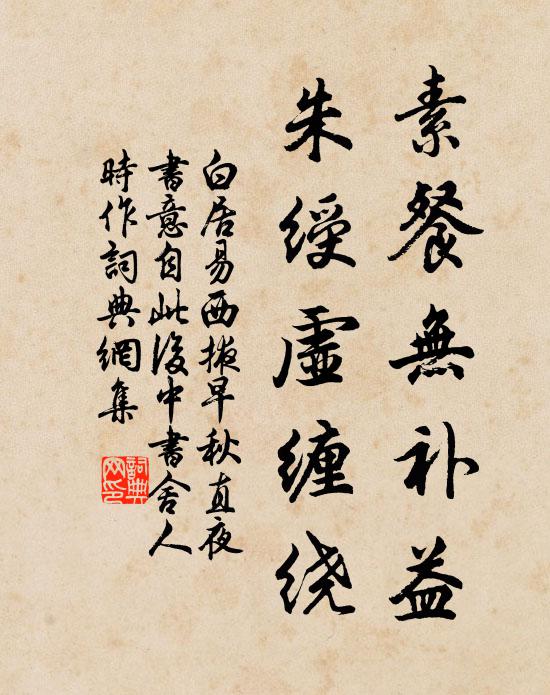 素餐無补益
朱綬虛缠绕
白居易西掖早秋直夜
書意自此後中書舍人
時作詞典網集
詞典网印